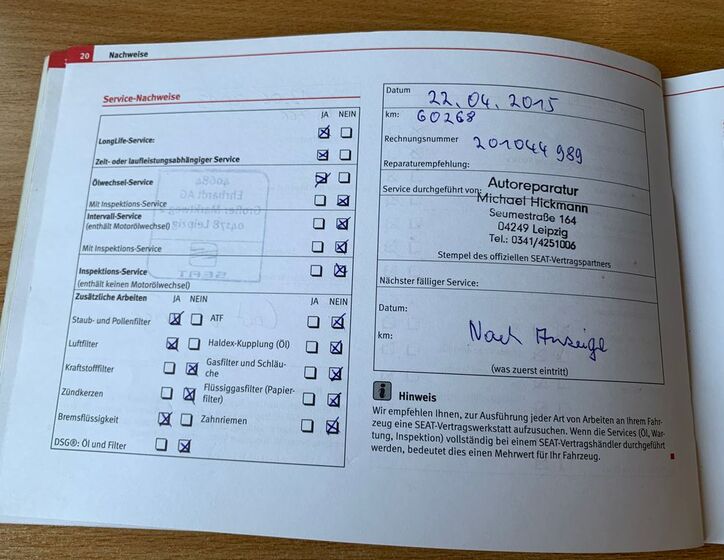 20 Nachweise
Service-Nachweise
JA NEIN
LongLife-Service:
Zeit- oder laufleistungsabhängiger Service
Ölwechsel-Service
Mit Inspektions-Service
Intervall-Service
(enthält Motorölwechsel)
Mit Inspektions-Service
Inspektions-Service
(enthält keinen Motorölwechsel)
Zusätzliche Arbeiten JA NEIN JA NEIN
Staub- und Pollenfilter ATF
Luftfilter Haldex-Kupplung (Öl)
Kraftstofffilter Gasfilter und Schläu-
che
Zündkerzen Flüssiggasfilter (Papier-
filter)
Bremsflüssigkeit Zahnriemen
DSG®: Öl und Filter
Datum 22.04.2015
km: 60268
Rechnungsnummer 201044989
Reparaturempfehlung:
Service durchgeführt von:
Autoreparatur
Michael Hickmann
Seumestraße 164
04249 Leipzig
Tel.: 0341/4251006
Stempel des offiziellen SEAT-Vertragspartners
Nächster fälliger Service:
Datum:
km: Nach Anzeige
(was zuerst eintritt)
i Hinweis
Wir empfehlen Ihnen, zur Ausführung jeder Art von Arbeiten an Ihrem Fahr-
zeug eine SEAT-Vertragswerkstatt aufzusuchen. Wenn die Services (Öl, War-
tung, Inspektion) vollständig bei einem SEAT-Vertragshändler durchgeführt
werden, bedeutet dies einen Mehrwert für Ihr Fahrzeug.